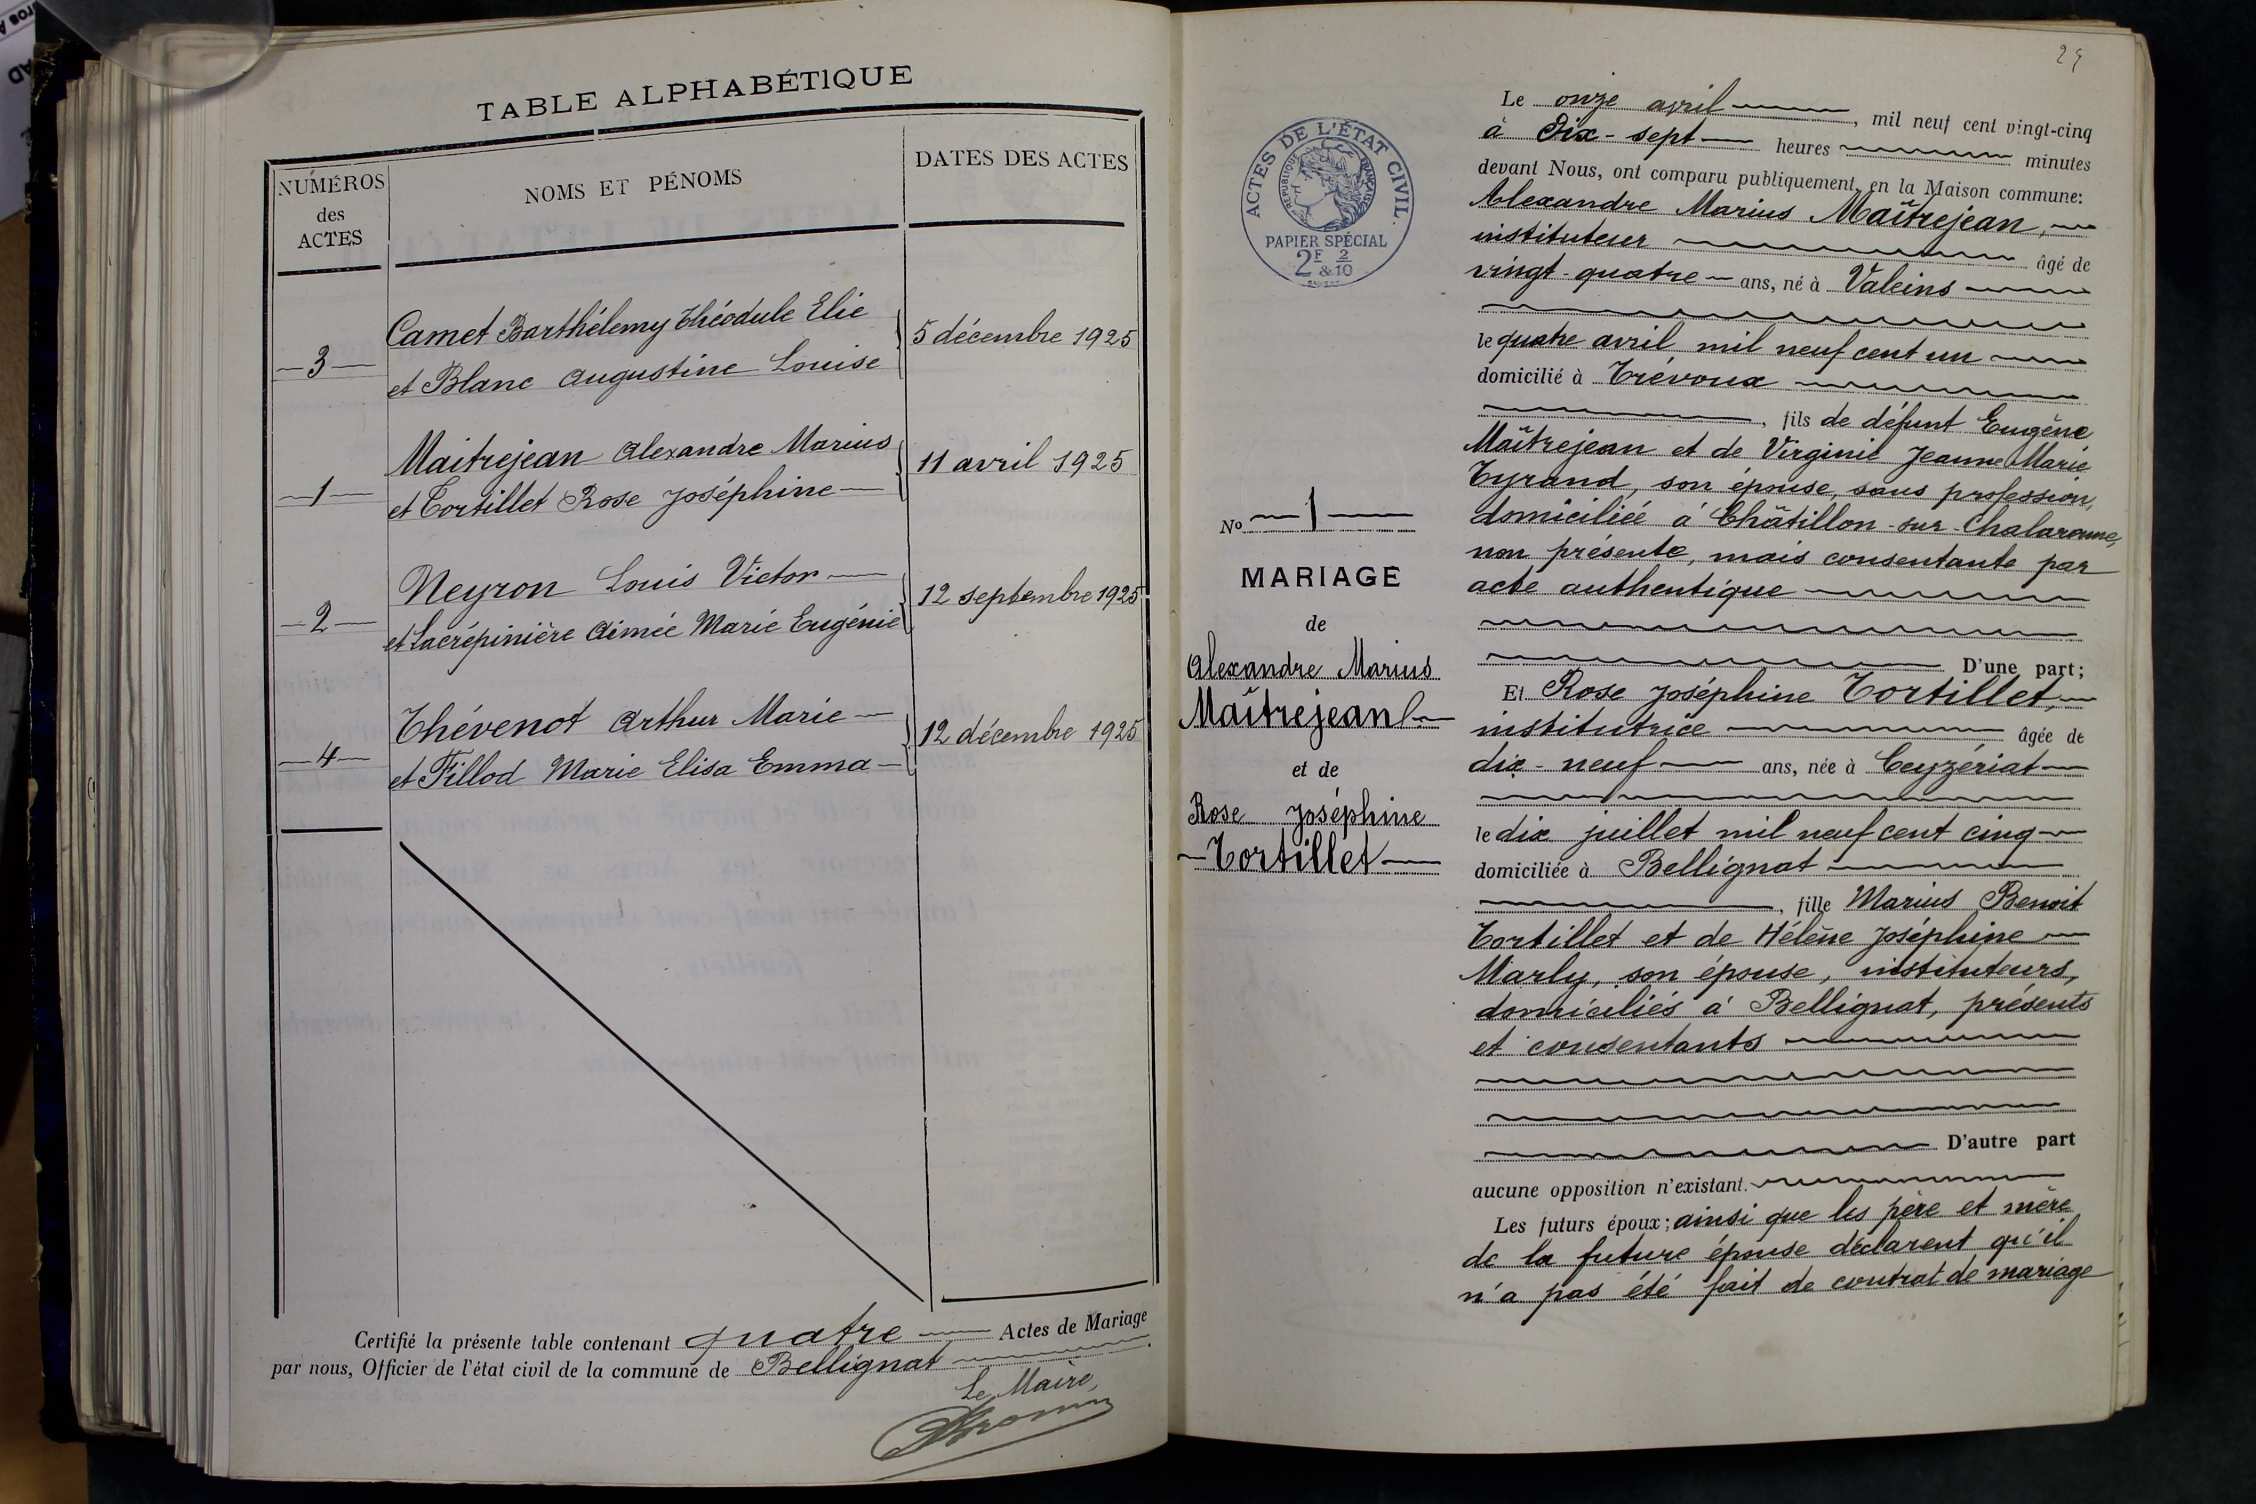 TABLE ALPHABÉTIQUE
NUMÉROS
des
ACTES
NOMS ET PÉNOMS
DATES DES ACTES
3
Camet Barthélemy Théodule Elie
et Blanc Augustine Louise
5 décembre 1925
1
Maitrejean Alexandre Marius
et Tortillet Rose Joséphine
11 avril 1925
2
Neyron Louis Victor
et Lacrépinière Aimée Marie Eugénie
12 septembre 1925
4
Thévenot Arthur Marie
et Fillod Marie Elisa Emma
12 décembre 1925
Certifié la présente table contenant quatre Actes de Mariage
par nous, Officier de l'état civil de la commune de Bellignat.
Le Maire,
ACTES DE L'ÉTAT CIVIL
RÉPUBLIQUE FRANÇAISE
PAPIER SPÉCIAL
2F & 2/10
No 1
MARIAGE
de
Alexandre Marius
Maîtrejean
et de
Rose Joséphine
Tortillet
Le onze avril, mil neuf cent vingt-cinq
à Dix-sept heures minutes
devant Nous, ont comparu publiquement, en la Maison commune:
Alexandre Marius Maîtrejean,
instituteur âgé de
vingt-quatre ans, né à Valeins
le quatre avril mil neuf cent un
domicilié à Trévoux
, fils de défunt Eugène
Maîtrejean et de Virginie Jeanne Marie
Tyrand, son épouse, sans profession,
domiciliée à Châtillon-sur-Chalaronne,
non présente, mais consentante par
acte authentique
D'une part;
Et Rose Joséphine Tortillet,
institutrice âgée de
dix-neuf ans, née à Ceyzériat
le dix juillet mil neuf cent cinq
domiciliée à Bellignat
, fille Marius Benoit
Tortillet et de Hélène Joséphine
Marly, son épouse, instituteurs,
domiciliés à Bellignat, présents
et consentants
D'autre part
aucune opposition n'existant.
Les futurs époux; ainsi que les père et mère
de la future épouse déclarent qu'il
n'a pas été fait de contrat de mariage